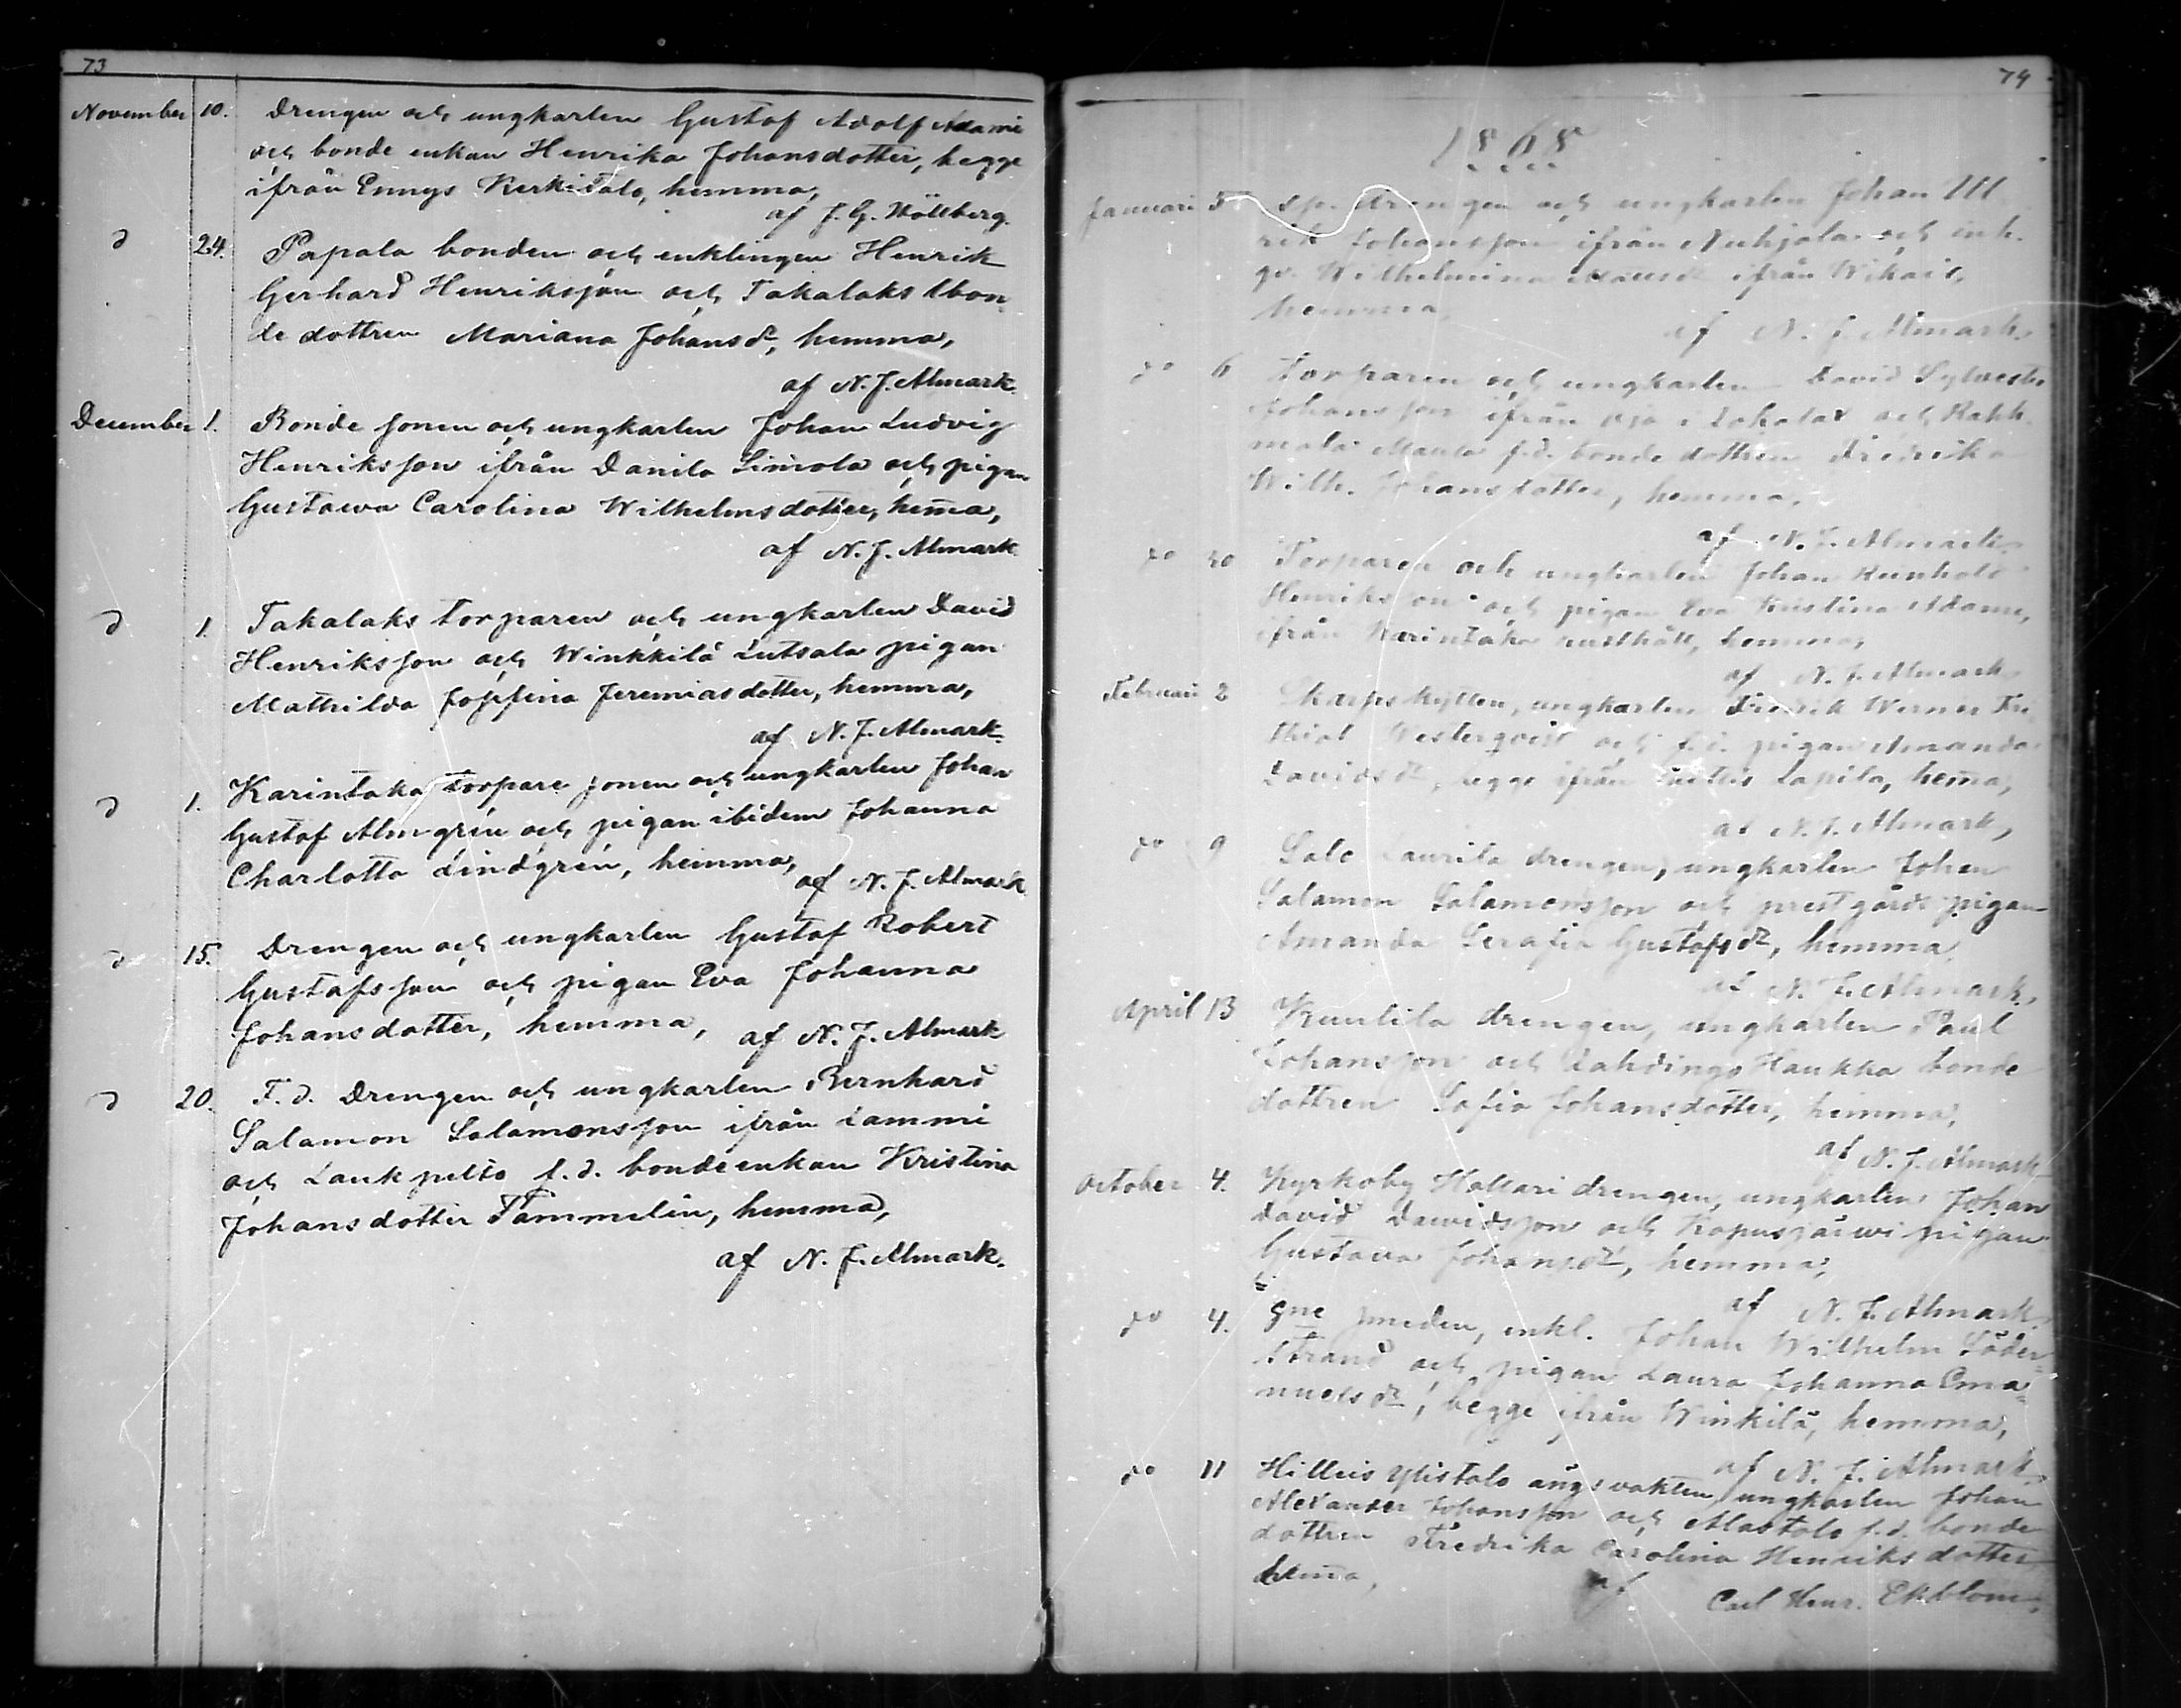 73
November 10. Drengen och ungkarlen Gustaf Adolf Adami
och bonde enkan Henrika Johansdotter, begge
ifrån Ennys Kerkitalo, hemma,
af J. G. Wöllberg.
d 24. Papala bonden och enklingen Henrik
Gerhard Henriksson och Takalaks bon
de dottren Mariana Johansdr, hemma,
af N. J. Almark.
December 1. Bonde sonen och ungkarlen Johan Ludvig
Henriksson ifrån Danila Simola och pigan
Gustawa Carolina Wilhelmsdotter, hem̄a,
af N. J. Almark
d 1. Takalaks torparen och ungkarlen David
Henriksson och Winkkilä Lutsala pigan
Mathilda Josefina Jeremiasdotter, hemma,
af N. J. Almark.
d 1. Karintaka torpare sonen och ungkarlen Johan
Gustaf Almgrén och pigan ibidem Johanna
Charlotta Lindgrén, hemma,
af N. J. Almark
d 15. Drengen och ungkarlen Gustaf Robert
Gustafsson och pigan Eva Johanna
Johansdotter, hemma, af N. J. Almark
d 20. F. d. Drengen och ungkarlen Bernhard
Salamon Salamonsson ifrån Lammi
och Laukpelto f. d. bondeenkan Kristina
Johansdotter Tammelin, hemma,
af N. J. Almark.
74
1868
Januari 5 drengen och ungkarlen Johan Ul
rik Johansson ifrån Nuhjala och enk.
Wilhelmina ifrån Wikais,
hemma,
af N. J. Almark.
do 6 Torparen och ungkarlen David Sylvester
Johansson ifrån i Lokalax och
f. d. bonde dottren Fredrika
Wilh. Johansdotter, hemma,
af N. J. Almark.
do 20 Torparen och ungkarlen Johan Reinhold
Henriksson och pigan Eva Kristina Adams,
ifrån Karintaka rusthåll, hemma,
af N. J. Almark
Februari 2 Skarpskytten, ungkarlen Fredrik Werner Fri
thiof Westerqvist och f. d. pigan Amanda
Davidsdr, begge ifrån Lapila, hem̄a,
af N. J. Almark,
do 9 Salo Laurila drengen, ungkarlen Johan
Salamon Salamonsson och prestgårds pigan
Amanda Serafia Gustafsdr, hemma,
af N. J. Almark.
April 13 Kuulila drengen, ungkarlen Paul
Johansson och Lahdings Haukka bonde
dottren Sofia Johansdotter, hemma,
af N. J. Almark
October 4. Kyrkoby Hallari drengen, ungkarlen Johan
David Dawidsson och Kapusjärwi pigan
Gustava Johansdr, hemma,
af N. J. Almark.
do 4. smeden, enkl. Johan Wilhelm Söder
strand och pigan Laura Johanna Ema=
nuelsdr, begge ifrån Winkilä, hemma,
af N. J. Almark.
do 11 Hilleis Ylistalo ängsvakten, ungkarlen Johan
Alexander Johansson och Alastalo f. d. bonde
dottren Fredrika Carolina Henriksdotter
hem̄a,
af Carl Henr. Ekblom.